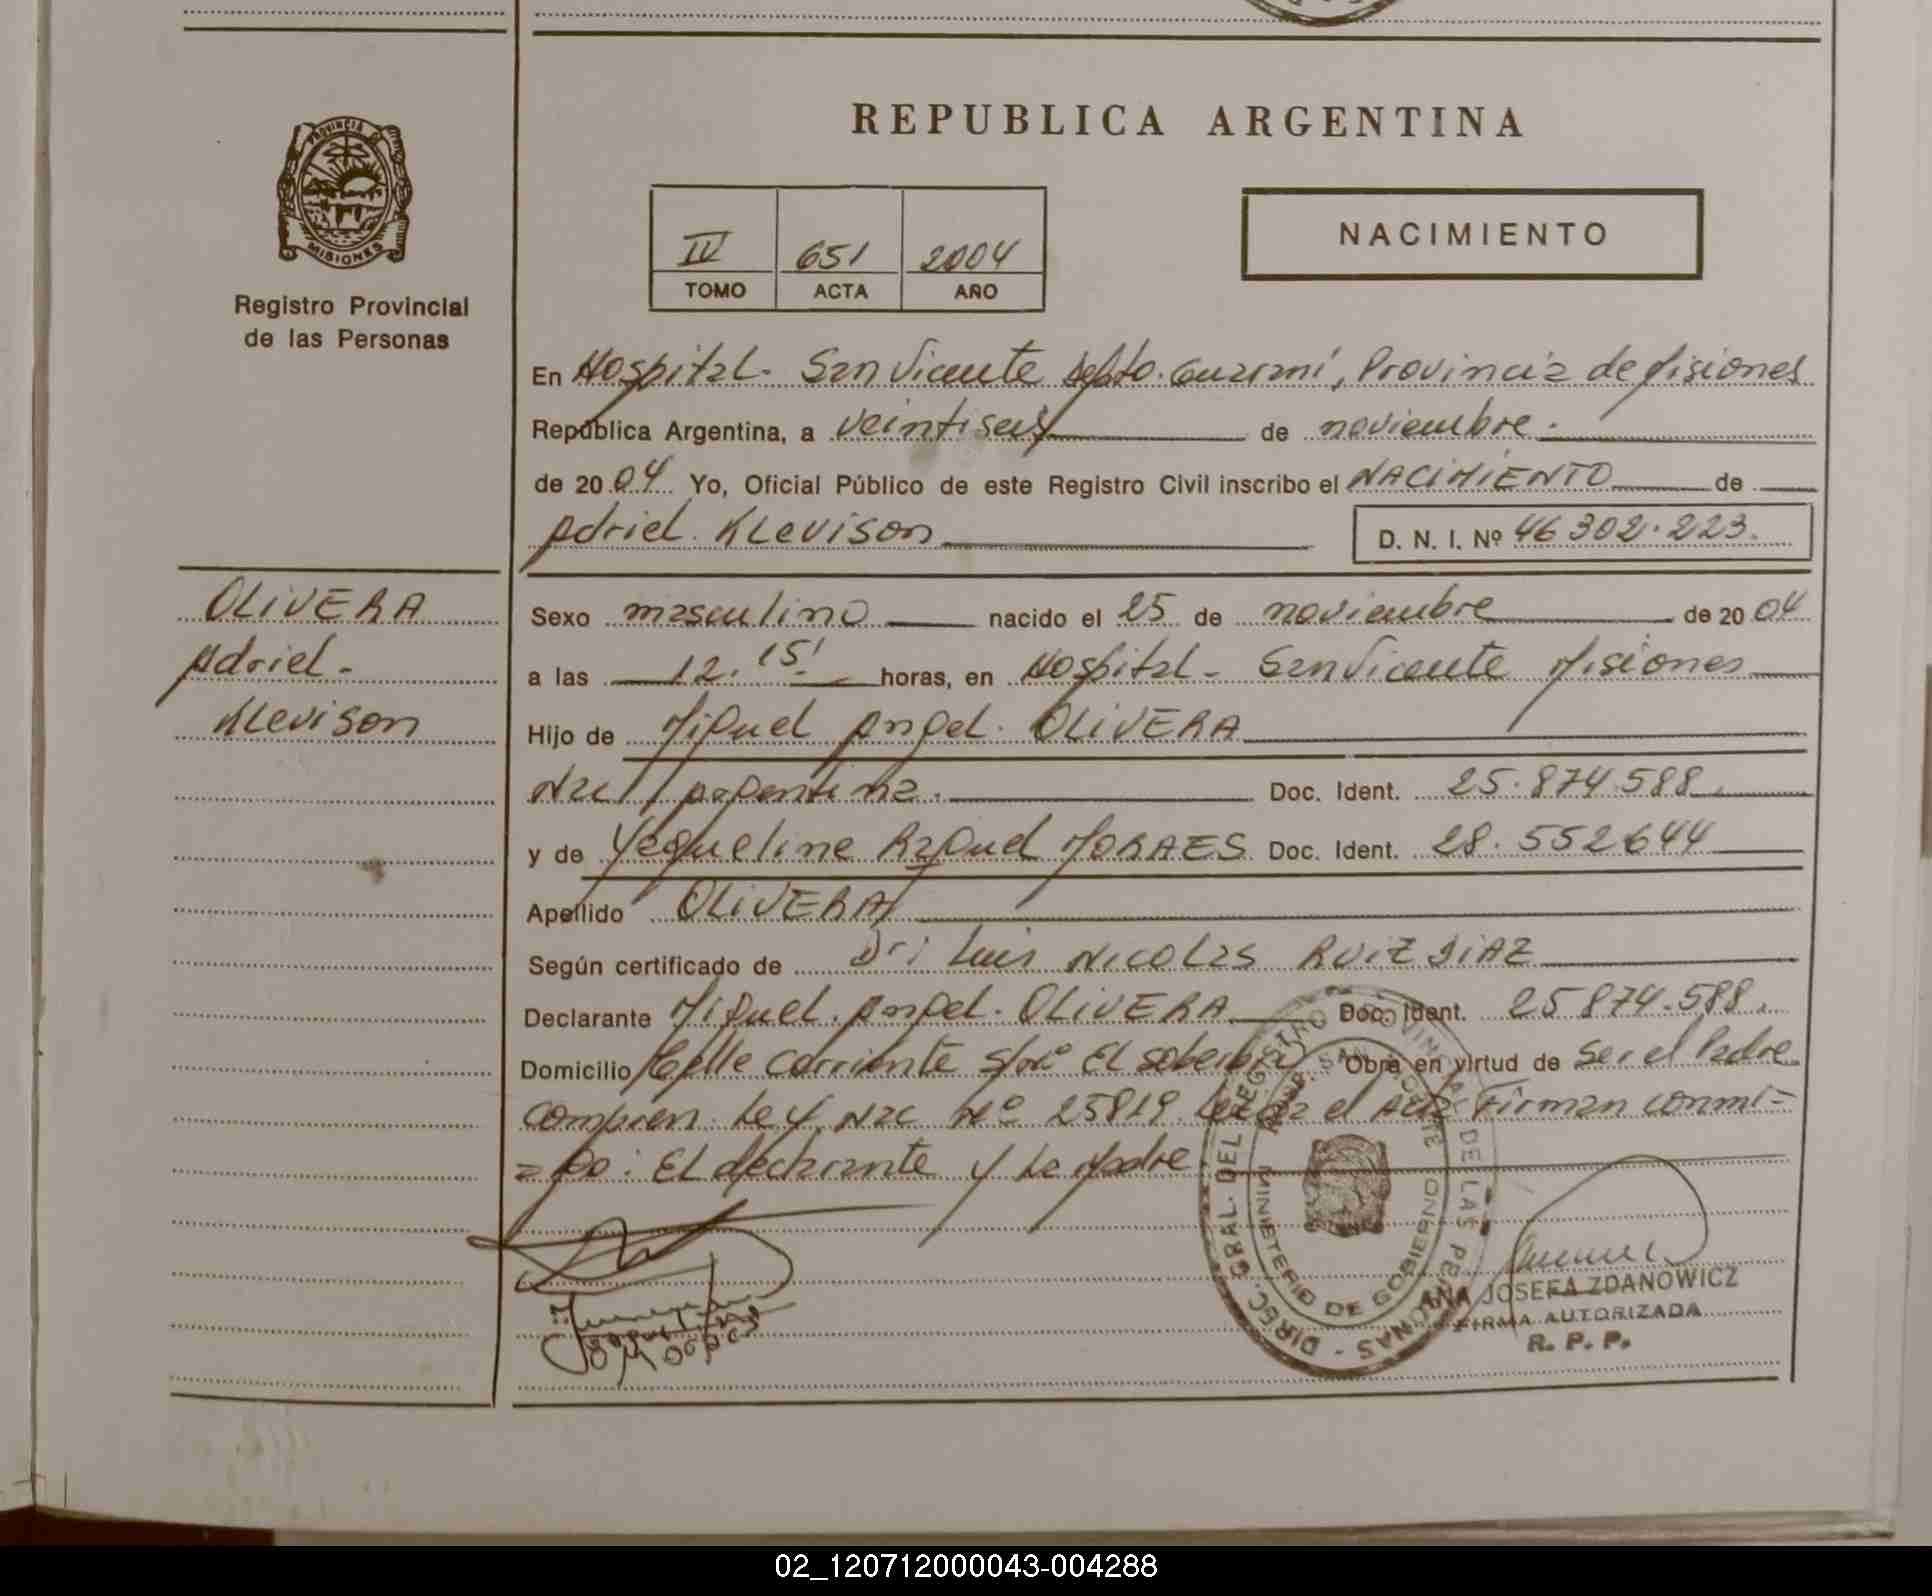 REPUBLICA ARGENTINA
PROVINCIA DE
MISIONES
Registro Provincial
de las Personas
IV 651 2004
TOMO ACTA AÑO
NACIMIENTO
En Hospital - San Vicente Depto. Guaraní, Provincia de Misiones
República Argentina, a veintiseis de noviembre.
de 20 04 Yo, Oficial Público de este Registro Civil inscribo el NACIMIENTO de
Adriel Klevison D. N. I. Nº 46302.223.
OLIVERA
Adriel -
Klevison
Sexo masculino nacido el 25 de noviembre de 20 04
a las 12.15' horas, en Hospital - San Vicente Misiones
Hijo de Miguel Angel. OLIVERA
Nac argentina. Doc. Ident. 25.874.588.
y de Yaqueline Raquel MORAES Doc. Ident. 28.552644
Apellido OLIVERA
Según certificado de Dr: Luis Nicolas RUIZ DIAZ
Declarante Miguel Angel. OLIVERA Doc. Ident. 25874.588.
Domicilio Calle Corriente s/nº El soberbio Obra en virtud de Ser el Padre
Ley Nac Nº 25819. el Acta Firman conmi-
=go: El declarante y La Madre
DIREC. GRAL. DEL REGISTRO PROVINCIAL DE LAS PERSONAS -
SAN VICENTE
MINISTERIO DE GOBIERNO
ANA JOSEFA ZDANOWICZ
FIRMA AUTORIZADA
R. P. P.
02_120712000043-004288